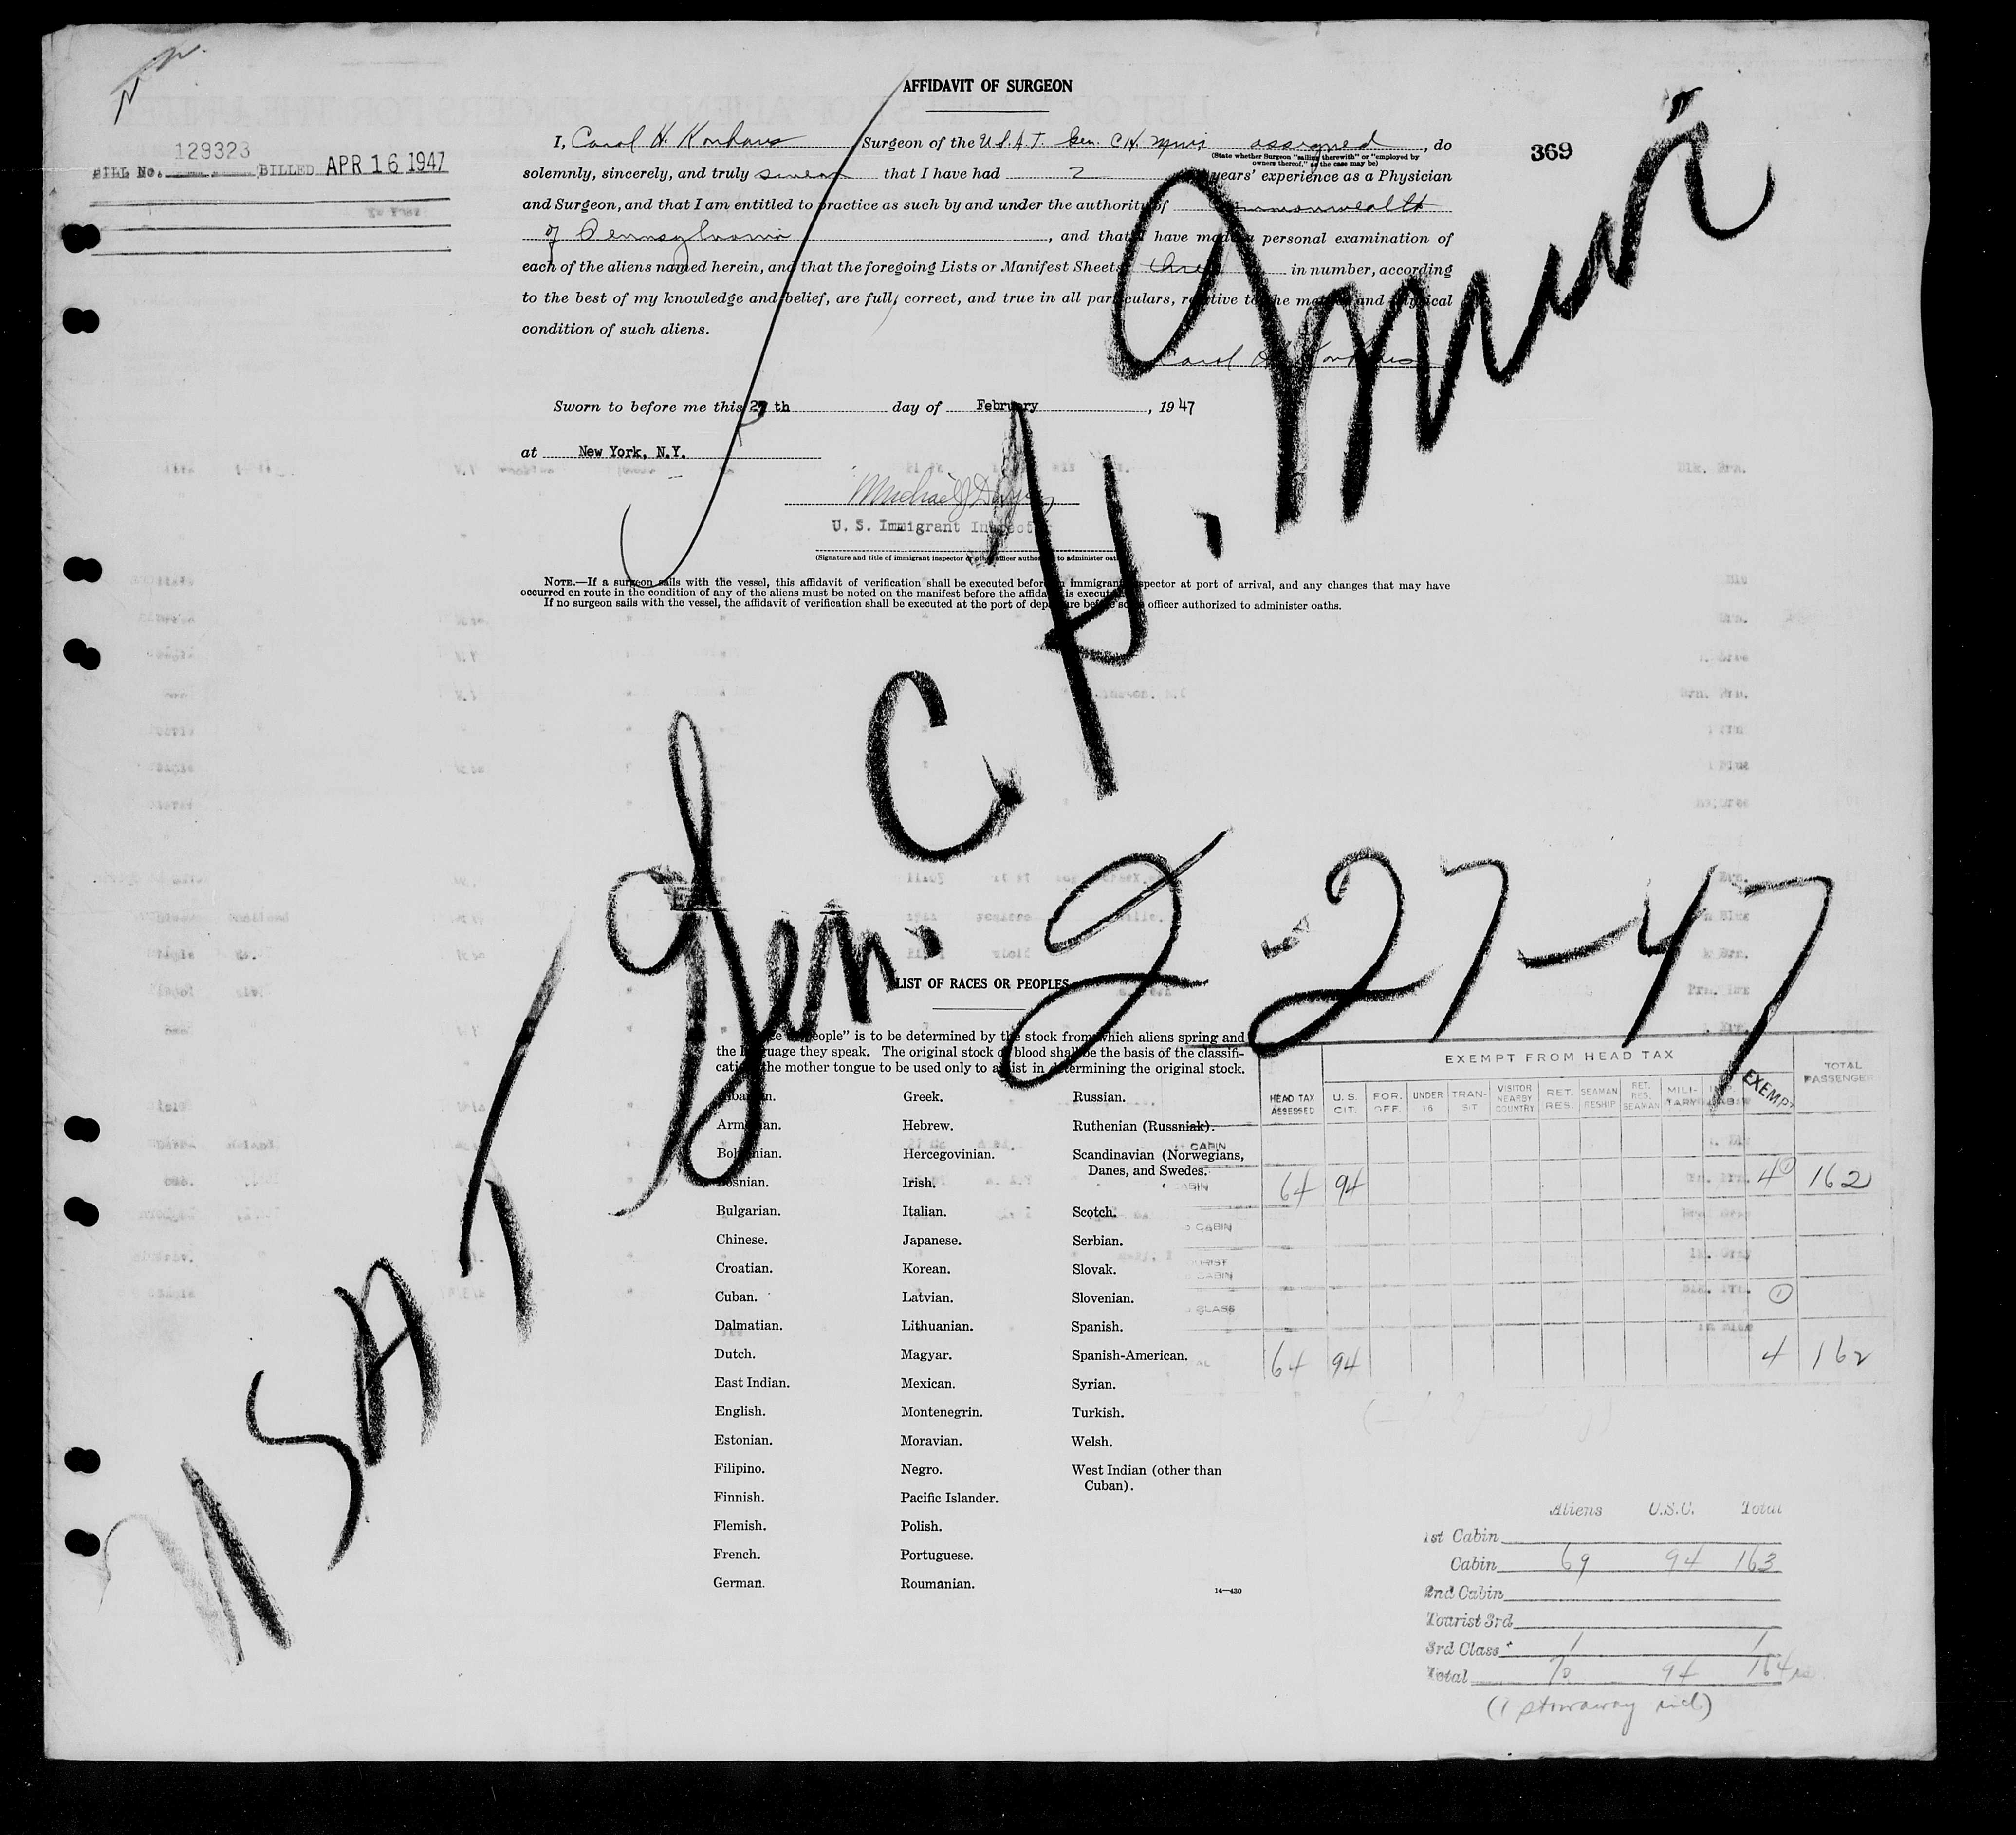 AFFIDAVIT OF SURGEON
369
BILL No. 129323 BILLED APR 16 1947
I, Carol H. Konhaus Surgeon of the U.S.A.T. Gen. C.H. Muir assigned, do
(State whether Surgeon "sailing therewith" or "employed by
owners thereof," as the case may be)
solemnly, sincerely, and truly swear that I have had 2 years' experience as a Physician
and Surgeon, and that I am entitled to practice as such by and under the authority of Commonwealth
of Pennsylvania, and that I have made a personal examination of
each of the aliens named herein, and that the foregoing Lists or Manifest Sheets, three in number, according
to the best of my knowledge and belief, are full, correct, and true in all particulars, relative to the mental and physical
condition of such aliens.
Carol H. Konhaus
Sworn to before me this 27th day of February, 1947
at New York, N.Y.
Michael J
U. S. Immigrant Inspector
(Signature and title of immigrant inspector or other officer authorized to administer oaths)
NOTE.—If a surgeon sails with the vessel, this affidavit of verification shall be executed before an immigrant inspector at port of arrival, and any changes that may have
occurred en route in the condition of any of the aliens must be noted on the manifest before the affidavit is executed.
If no surgeon sails with the vessel, the affidavit of verification shall be executed at the port of departure before some officer authorized to administer oaths.
USAT Gen. C. H. Muir
2-27-47
LIST OF RACES OR PEOPLES
"Race or people" is to be determined by the stock from which aliens spring and
the language they speak. The original stock or blood shall be the basis of the classifi-
cation, the mother tongue to be used only to assist in determining the original stock.
Albanian. Greek. Russian.
Armenian. Hebrew. Ruthenian (Russniak).
Bohemian. Hercegovinian. Scandinavian (Norwegians,
Danes, and Swedes.
Bosnian. Irish.
Bulgarian. Italian. Scotch.
Chinese. Japanese. Serbian.
Croatian. Korean. Slovak.
Cuban. Latvian. Slovenian.
Dalmatian. Lithuanian. Spanish.
Dutch. Magyar. Spanish-American.
East Indian. Mexican. Syrian.
English. Montenegrin. Turkish.
Estonian. Moravian. Welsh.
Filipino. Negro. West Indian (other than
Cuban).
Finnish. Pacific Islander.
Flemish. Polish.
French. Portuguese.
German. Roumanian.
14—430
EXEMPT FROM HEAD TAX
HEAD TAX ASSESSED U.S. CIT. FOR. OFF. UNDER 16 TRANSIT VISITOR NEARBY COUNTRY RET. RES. SEAMAN RESHIP RET. RES. SEAMAN MILITARY EXEMPT TOTAL PASSENGER
CABIN
CABIN 64 94 4 1 162
CABIN
TOURIST
CABIN
CLASS 1
64 94 4 162
Aliens U.S.C. Total
1st Cabin
Cabin 69 94 163
2nd Cabin
Tourist 3rd
3rd Class 1 1
Total 70 94 164
(1 stowaway incl)